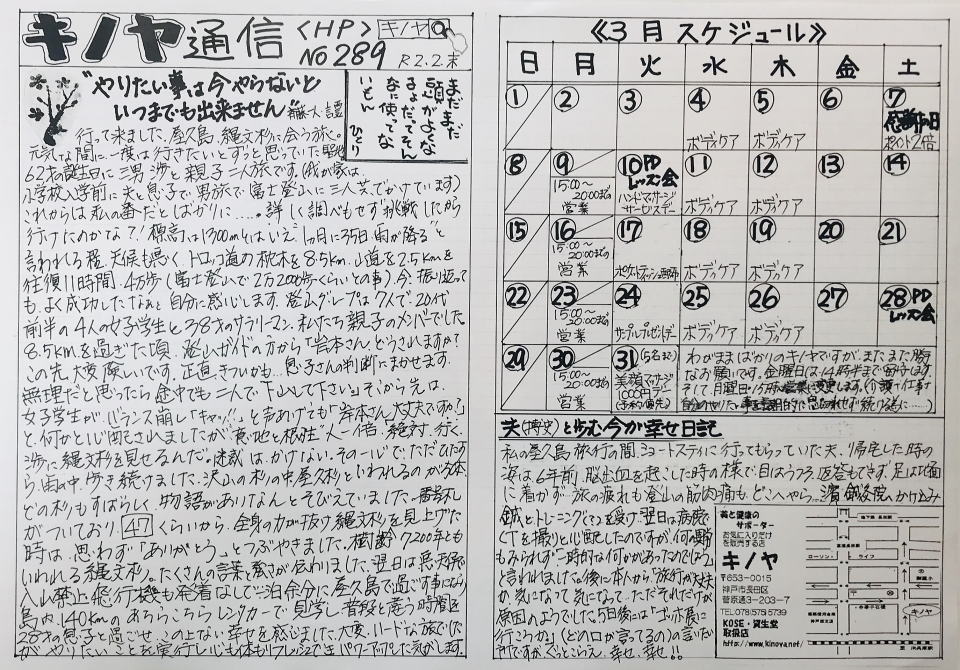 キノヤ通信
〈HP〉キノヤ
No 289
R2.2.末
"やりたい事は今やらないと
いつまでも出来ません"
まだまだ
行って来ました、屋久島、縄文杉に会う旅。
元気な間に一度は行きたいとずっと思っていた聖地
62才の誕生日に三男 渉と親子二人旅です。(我が家は、
小学校入学前に夫と息子で男旅で富士登山に三人共でかけています)
これからは私の番だとばかりに……。詳しく調べもせず挑戦したから
行けたのかナな?!標高は1300mとはいえ"1ヶ月に35日雨が降る"と
言われる程、天候も悪く トロッコ道の枕木を8.5km、山道を2.5kmを
往復11時間、4万歩(富士登山で2万2000歩くらいとの事)今、振り返って
も、よく成功したなぁと自分に感心します。登山グループは7人で、20代
前半の4人の女子学生と38才のサラリーマン、私たち親子のメンバーでした。
8.5kmを過ぎた頃、登山ガイドの方から「岩本さんどうされますか?
この先、大変険しいです。正直きついかも…息子さんの判断にまかせます。
無理だと思ったら途中でも二人で、下山して下さい」そこから先は、
女子学生が、バランス崩し「キャッ!!」と声あげても「岩本さん大丈夫ですか?」
と、何かと心配されましたが"意地と根性"人一倍、絶対、行く。
渉に縄文杉を見せるんだ。迷惑は、かけない。その一心で、ただひたす
ら、雨の中、歩き続けました。沢山の杉の中屋久杉といわれるのが数本
どの杉もすばらしく、物語がありなんとそびえていました。一番札
がついており 47 くらいから、全身の力が抜け縄文杉を見上げた
時は、思わず「ありがとう」とつぶやきました。樹齢7200年とも
いわれる縄文杉。たくさんの言葉と驚きが伝わいました。翌日は悪天候で
入山禁止、飛行機も発着なしで一泊余分に屋久島で過ごす事になり
島内、140kmのあちらこちらレンタカーで見学し普段と違う時間を
28才の息子と過ごせ、この上ない幸せを感じました。大変、ハードな旅でした
がやりたいことを実行し心も体もリフレッシュでき、パワーアップした気がします。
《3月 スケジュール》
日 月 火 水 木 金 土
1 2 3 4 5 6 7
ボディケア ボディケア 感謝日 ポイント2倍
8 9 10 11 12 13 14
15:00〜20:00まで営業 PDレッスン会 ハンドマッサージサービスデー ボディケア ボディケア
15 16 17 18 19 20 21
15:00〜20:00まで営業 ボディケア ボディケア
22 23 24 25 26 27 28
15:00〜20:00まで営業 サンプルプレゼントデー ボディケア ボディケア PDレッスン会
29 30 31
15:00〜20:00まで営業 (5名まで) 美顔マッサージ 1000円 (予約優先)
わがままばかりのキノヤですが、またまた勝手
なお願いです。金曜日は14時半まで留守します
そして、月曜日、15時から営業に変更します。介護+仕事+
夫(博史)と歩む今が幸せ日記
私の屋久島旅行の間、ショートスティに行ってもらっていた夫。帰宅した時の
姿は6年前、脳出血を起こした時の様で目はうつろ、返答もできず、足は地面
に着かず…旅の疲れも登山の筋肉痛も、どこへやら…濱鍼灸院へかけ込み
鍼とトレーニング(?)を受け、翌日は病院で
CTを撮りと心配したのですが、何の異常
もみられず「一時的な何かがあったのでしょう」
と言われました。後に本人から「旅行が大丈夫
か気になって気になって…ただそれだけが
原因のようでした。5日後には「ゴッホ展に
行こうか」(どの口が言ってるの)の言いたい
所ですが、ぐっとこらえ、幸せ、幸せ!!
美と健康の
サポーター
お気に入りだけ
を販売する店
キノヤ
〒653-0015
神戸市長田区
菅原通3-203-7
TEL 078-576-5739
KOSE・資生堂
取扱店
http://www.kinoya.net/
ローソン
ライフ
キノヤ